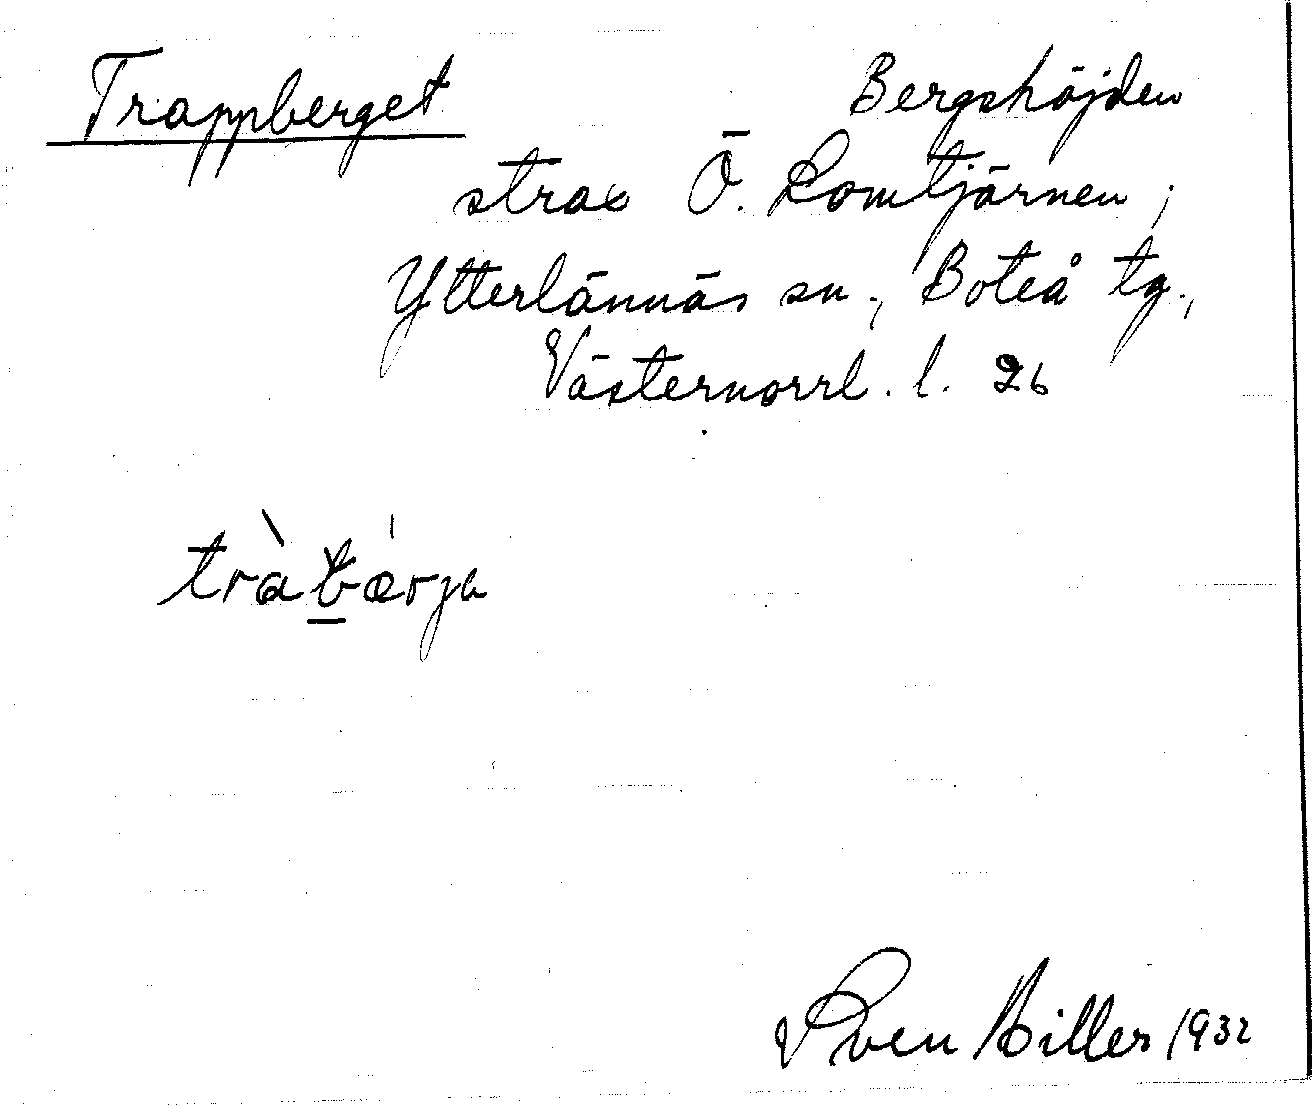 Trappberget Bergshöjden
strax Ö. Lomtjärnen;
Ytterlännäs sn., Boteå tg.,
Västernorrl. l. 26
Sven Hiller 1932